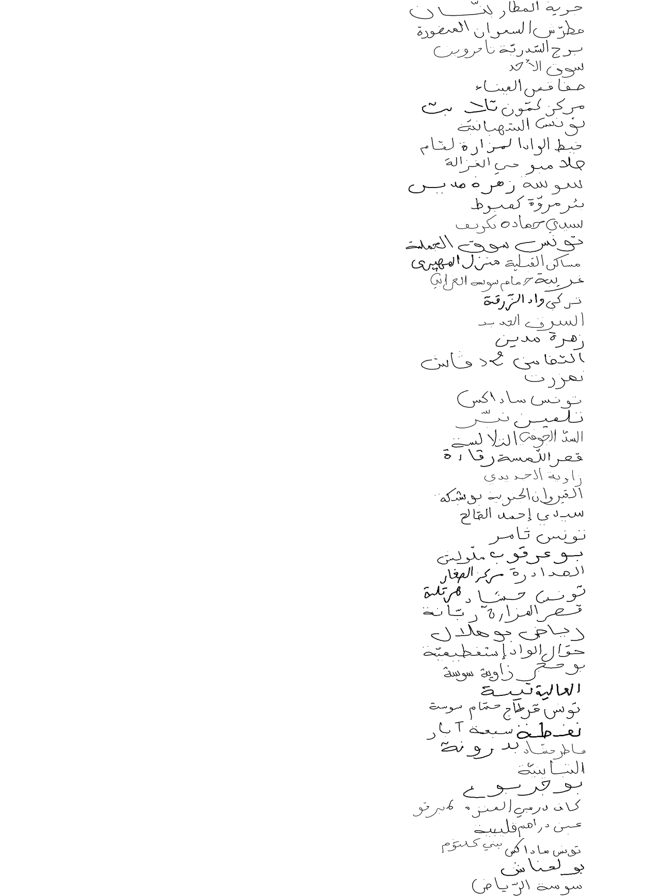 حرية المطار لتسان
مطرس السمران المنصورة
برج السدرية تاجرويين
سوق الأحد
صفاقس الميناء
مركز كمون تلابت
تونس النبهانية
خيط الوادا لمزارة لشام
صلامبو حي الغزالة
سوسة زهرة مدين
بئر مروة كعبوط
سيدي حمادة تكريف
تونس سوق الجملة
مساكن القبلية منزل المهيري
غريبة حمام سوسة الغرابي
تركي واد الزرقة
السرى الجديد
زهرة مدين
التضامن محمد قاس
تمزرت
تونس سادا كس
تلمين نسر
السد الجومين التلالسة
قصر اللمسة رقادة
زاوية الجديدي
القيروان الجنوبية بوشبكة
سيدي إحمد الصالح
تونس ثامر
بوعرقوب ملوليش
الصدادرة مركز الصغار
تونس حشاد هرقلة
قصر المزارة ربانة
رياض بوهلال
حوال الواد إستفطيمية
بوحسن زاوية سوسة
العالية تيبة
تونس قرطاج حمام سوسة
نفطة سبعة آبار
ماطر حشاد بدرونة
الشابية
بوجربوع
عين دراهم قليبية
تونس مادا كس بني كلثوم
بولعناش
سوسة الرياض